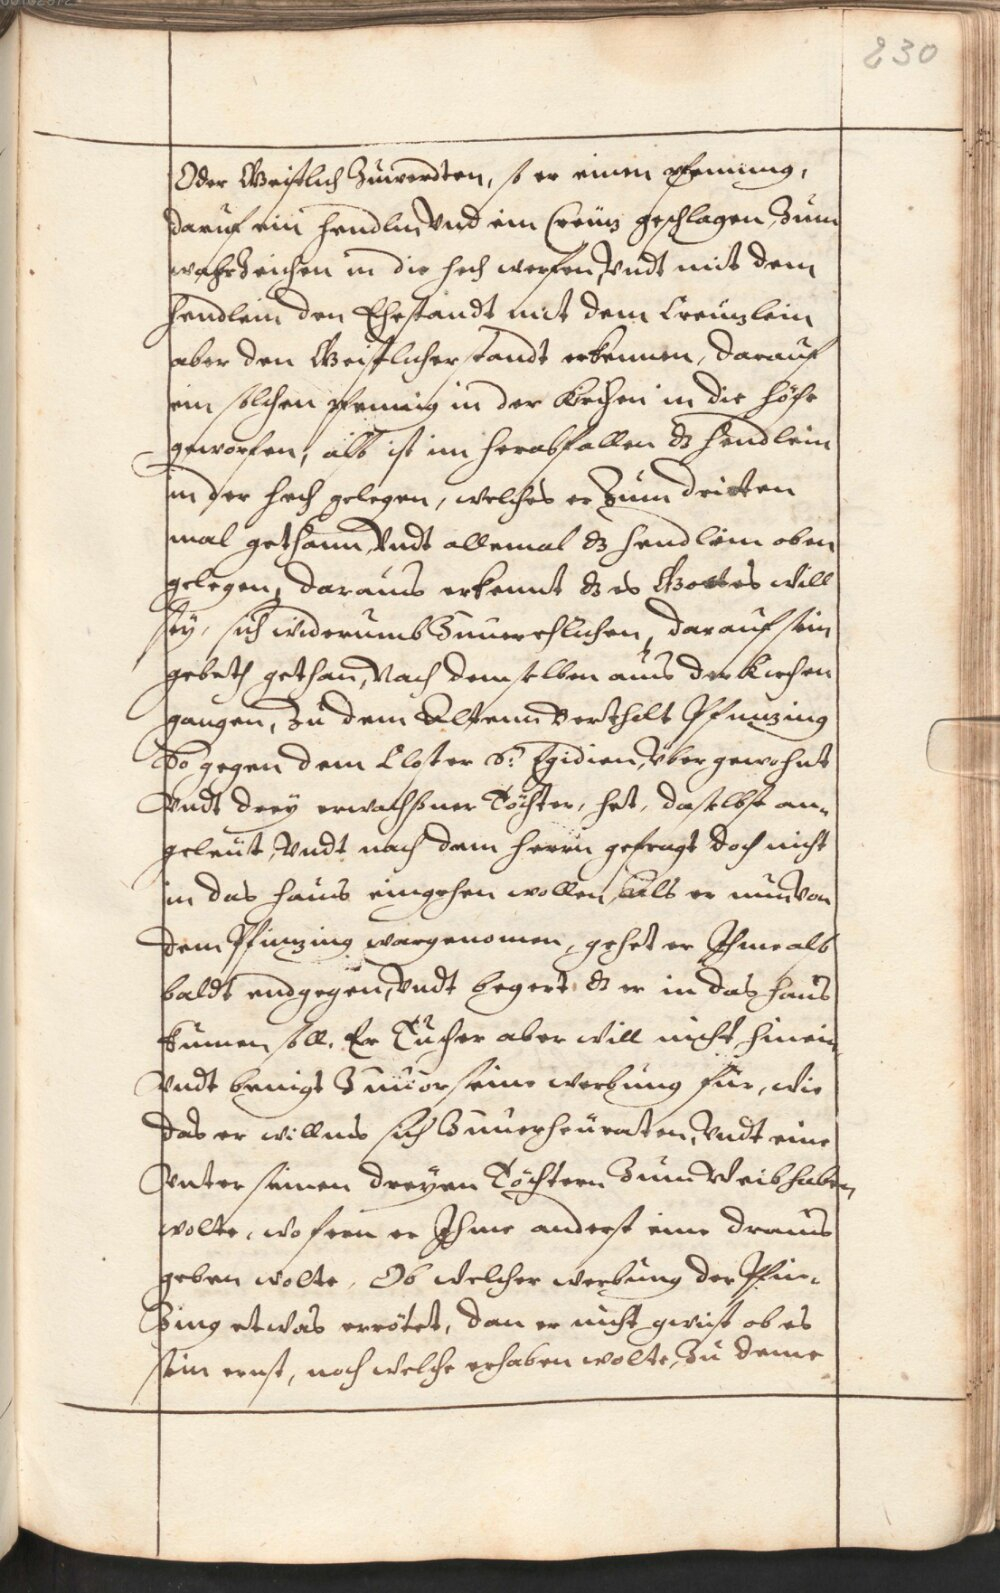 230
Oder Geistlich Zuwerdten, so er einen pfenning,
darauf ein hendlin Vnd ein Creüz geschlagen, Zum
wahrzeichen in die hech werfen, Vndt mit dem
hendlein den Ehestandt mit dem Creuzlein
aber den Geistlicher standt erkennen, darauf
ein solchen pfennig in der Kirchen in die höhe
geworfen, alß ist im herabfallen dz hendlein
in der hech gelegen, welches er Zum dritten
mal gethann, Vndt allemal dz hendlein oben
gelegen, daraus erkennt dz es Gottes will
sey, sich widerumb Zuuerehlichen, darauf sein
gebeth gethan, Nach demselben aus der Kirchen
gangen, Zu dem Eltern Berthold Pfinzing
So gegen dem Closter St. Egidien, vber gewohnt
Vndt drey erwachßner Töchter, het, daselbst an-
geleut, Vndt nach dem herrn gefragt doch nicht
in das haus eingehen wollen, Als er nun von
dem Pfinzing wargenomen, gehet er Ihme alß
baldt endgegen, Vndt begert dz er in das haus
kumen soll. Er Tucher aber will nicht hinein
Vndt bringt Zuuor seine werbung für, wie
das er willens sich Zuuerheüraten, Vndt eine
Vnter seinen dreyen Töchtern Zum Weib haben
wolte, wofern er Ihme anderst eine draus
geben wolte, Ob welcher werbung der Pfin-
Zing etwas errötet, dan er nicht gwist ob es
sein ernst, noch welche erhaben wolte, Zu deme